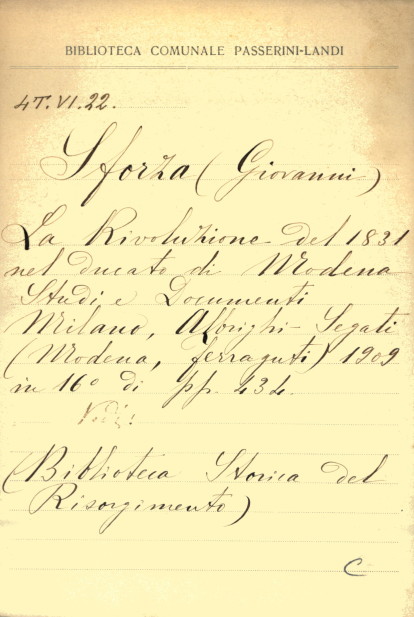 BIBLIOTECA COMUNALE PASSERINI-LANDI
4T.VI.22.
Sforza (Giovanni)
La Rivoluzione del 1831
nel ducato di Modena
Studi e Documenti
Milano, Albrighi-Segati
(Modena, Ferraguti) 1909
in 16° di pp. 434.
Vedi:
(Biblioteca Storica del
Risorgimento)
C